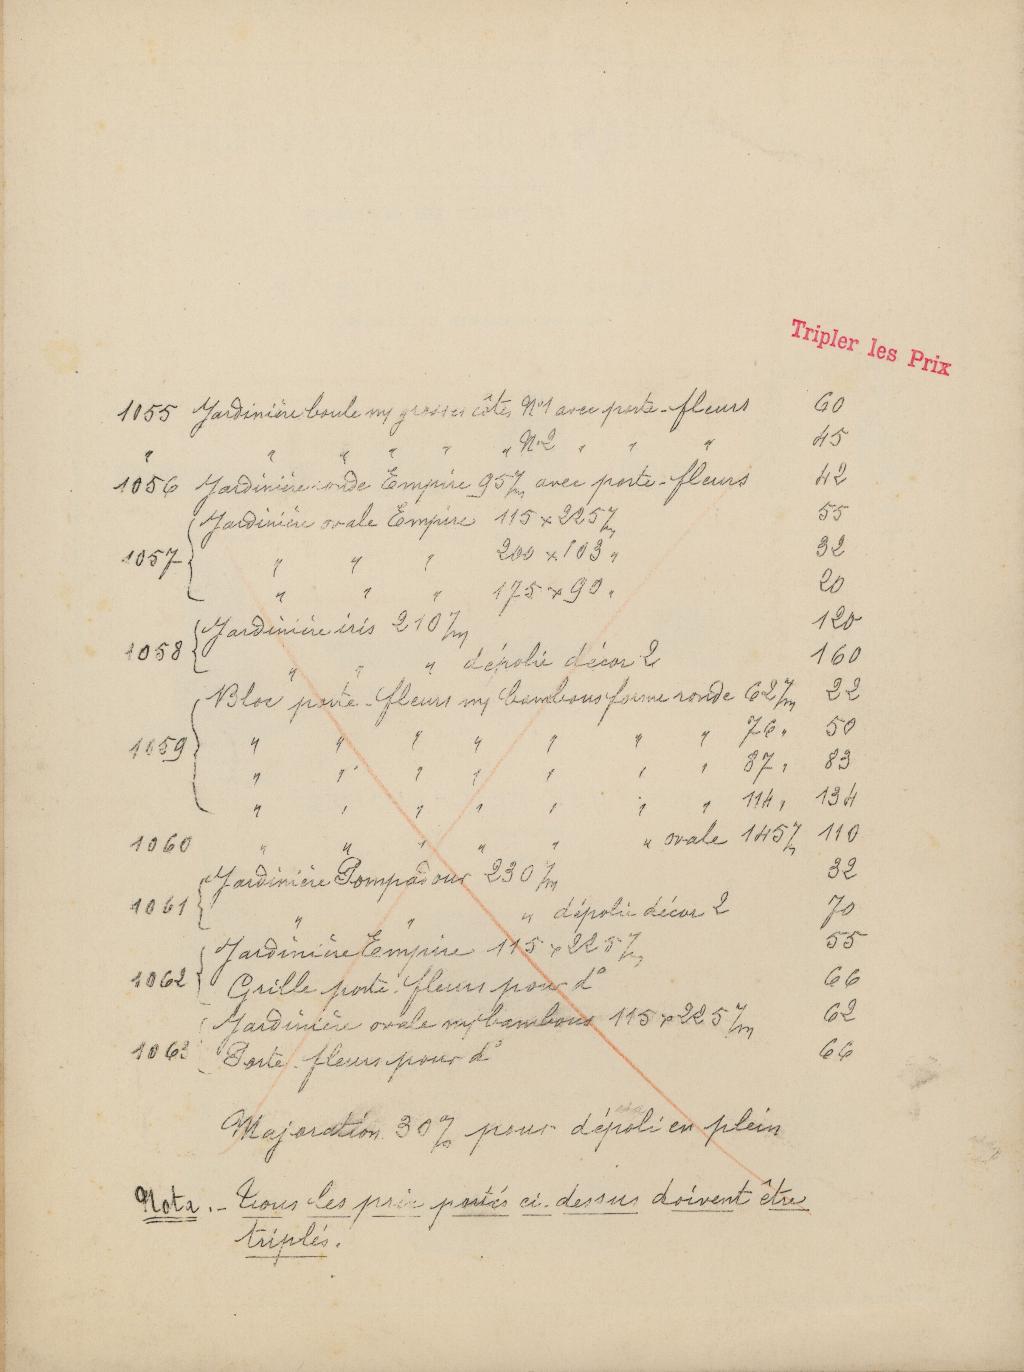 Tripler les Prix
1055 Jardinière boule mf grosses côtes N°1 avec porte-fleurs 60
" " " " " " N°2 " " " 45
1056 Jardinière ronde Empire 95 m/m avec porte-fleurs 42
Jardinière ovale Empire 115 x 225 m/m 55
1057 " " " 200 x 103 " 32
" " " 175 x 90 " 20
Jardinière iris 210 m/m 120
1058 " " " dépolie décor 2 160
Bloc porte-fleurs mf bambous forme ronde 62 m/m 22
1059 " " " " " " " 76 " 50
" " " " " " " 87 " 83
" " " " " " " 114 " 134
1060 " " " " " " ovale 145 m/m 110
Jardinière Pompadour 230 m/m 32
1061 " " " dépolie décor 2 70
Jardinière Empire 115 x 225 m/m 55
1062 Grille porte-fleurs pour d° 66
Jardinière ovale mf bambous 115 x 225 m/m 62
1063 Porte-fleurs pour d° 66
Majoration 30% pour dépoli en plein
Nota.- Tous les prix portés ci-dessus doivent être
triplés.